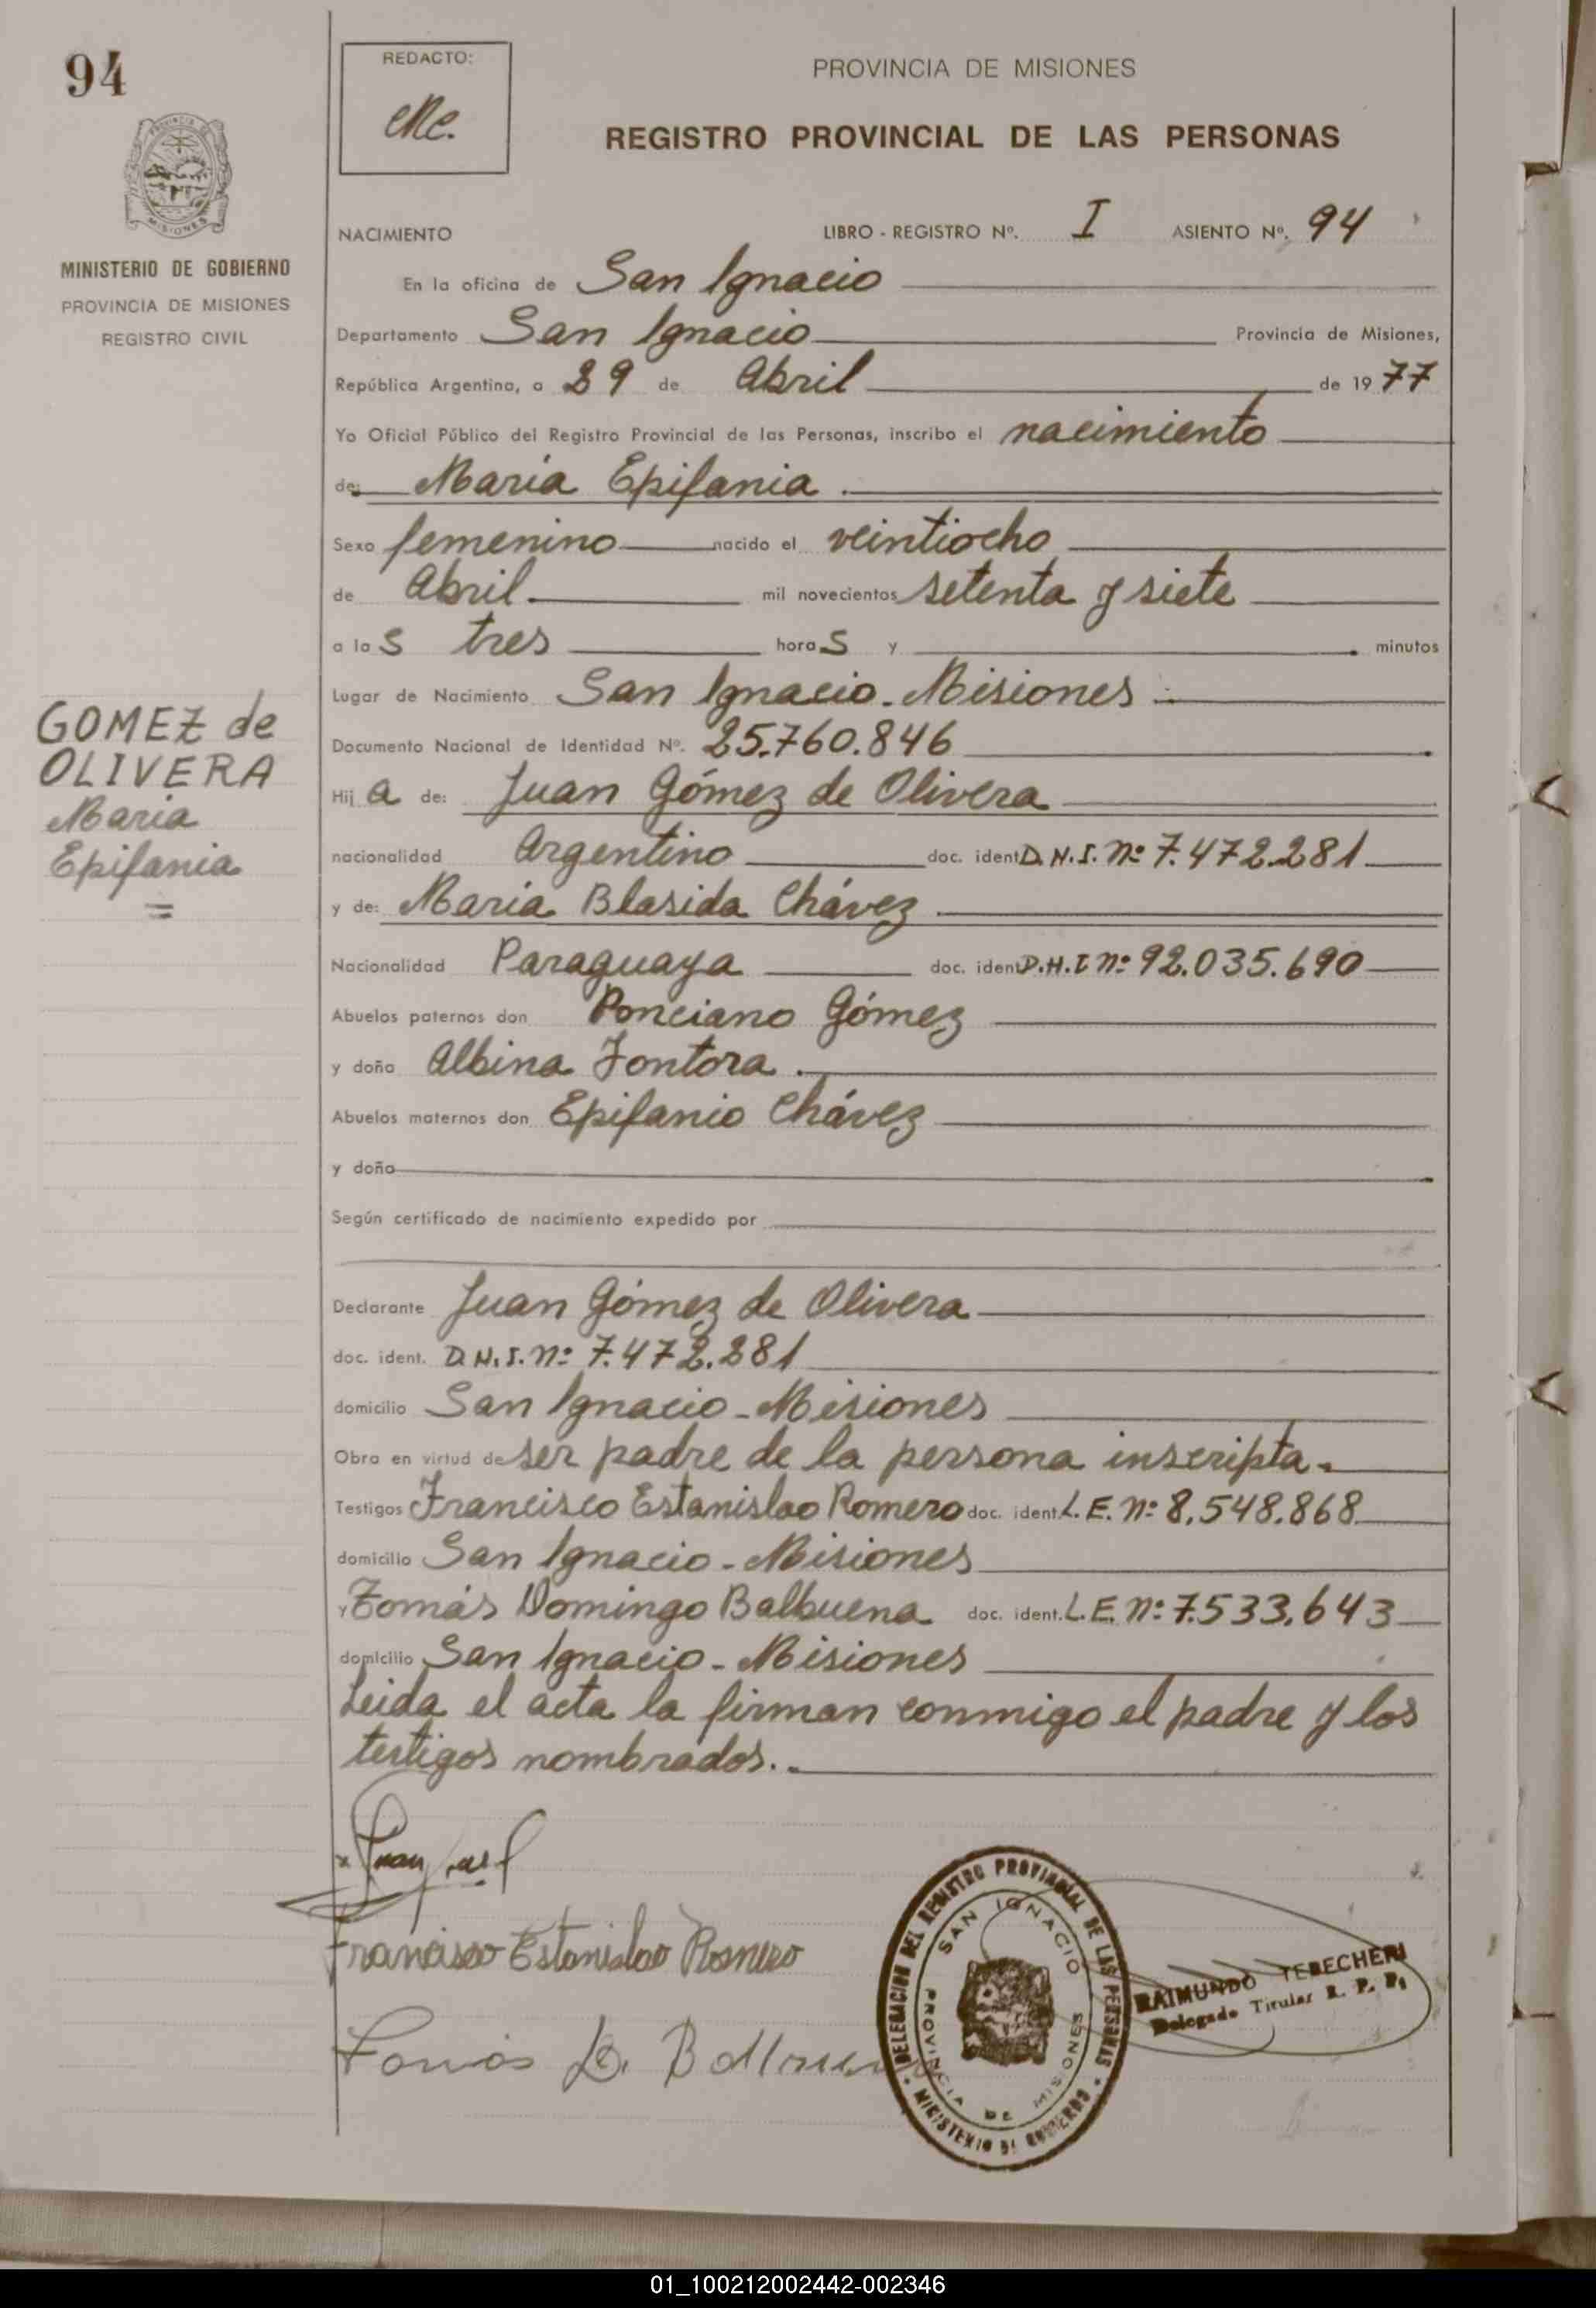 94
REDACTO:
PROVINCIA DE MISIONES
REGISTRO PROVINCIAL DE LAS PERSONAS
MINISTERIO DE GOBIERNO
PROVINCIA DE MISIONES
REGISTRO CIVIL
NACIMIENTO LIBRO - REGISTRO Nº. I ASIENTO Nº. 94
En la oficina de San Ignacio
Departamento San Ignacio Provincia de Misiones,
República Argentina, a 29 de Abril de 1977
Yo Oficial Público del Registro Provincial de las Personas, inscribo el nacimiento
de: María Epifania.
Sexo femenino nacido el veintiocho
de Abril mil novecientos setenta y siete
a las tres horas y minutos
Lugar de Nacimiento San Ignacio - Misiones
Documento Nacional de Identidad Nº. 25.760.846
Hija de: Juan Gómez de Olivera
nacionalidad Argentino doc. ident D.N.I. Nº 7.472.281
y de: María Blasida Chávez
Nacionalidad Paraguaya doc. ident D.N.I Nº 92.035.690
Abuelos paternos don Ponciano Gómez
y doña Albina Fontora.
Abuelos maternos don Epifanio Chávez
y doña
Según certificado de nacimiento expedido por
Declarante Juan Gómez de Olivera
doc. ident. D.N.I. Nº 7.472.281
domicilio San Ignacio - Misiones
Obra en virtud de ser padre de la persona inscripta.
Testigos Francisco Estanislao Romero doc. ident. L.E. Nº 8.548.868
domicilio San Ignacio - Misiones
y Tomás Domingo Balbuena doc. ident. L.E. Nº 7.533.643
domicilio San Ignacio - Misiones
Leida el acta la firman conmigo el padre y los
testigos nombrados.
GOMEZ de
OLIVERA
Maria
Epifania
Francisco Estanislao Romero
Tomás D. Balbuena
DELEGACION DEL REGISTRO PROVINCIAL DE LAS PERSONAS
MINISTERIO DE GOBIERNO
SAN IGNACIO
PROVINCIA DE MISIONES
RAIMUNDO TEBECHERI
Delegado Titular R. P. P.
01_100212002442-002346